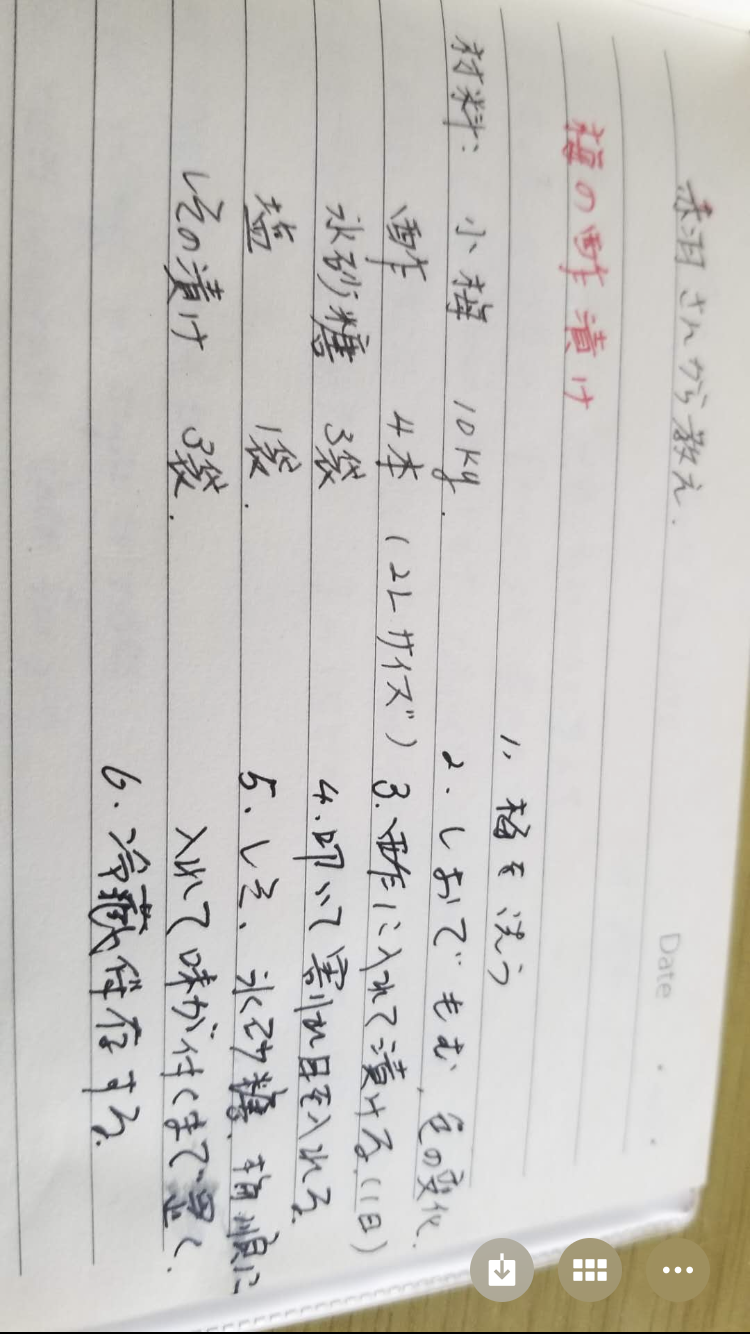 Date
赤羽さんから教え.
梅の酢漬け
材料: 小梅 10kg.
酢 4本 (2Lサイズ)
氷砂糖 3袋
塩 1袋.
しその漬け 3袋.
1、梅を洗う
2.しおでもむ、色の変化.
3.酢に入れて漬ける、(1日)
4.叩いて割れ目を入れる.
5.しそ、氷砂糖、梅順に
入れて味が付くまで置く.
6.冷蔵保存する.